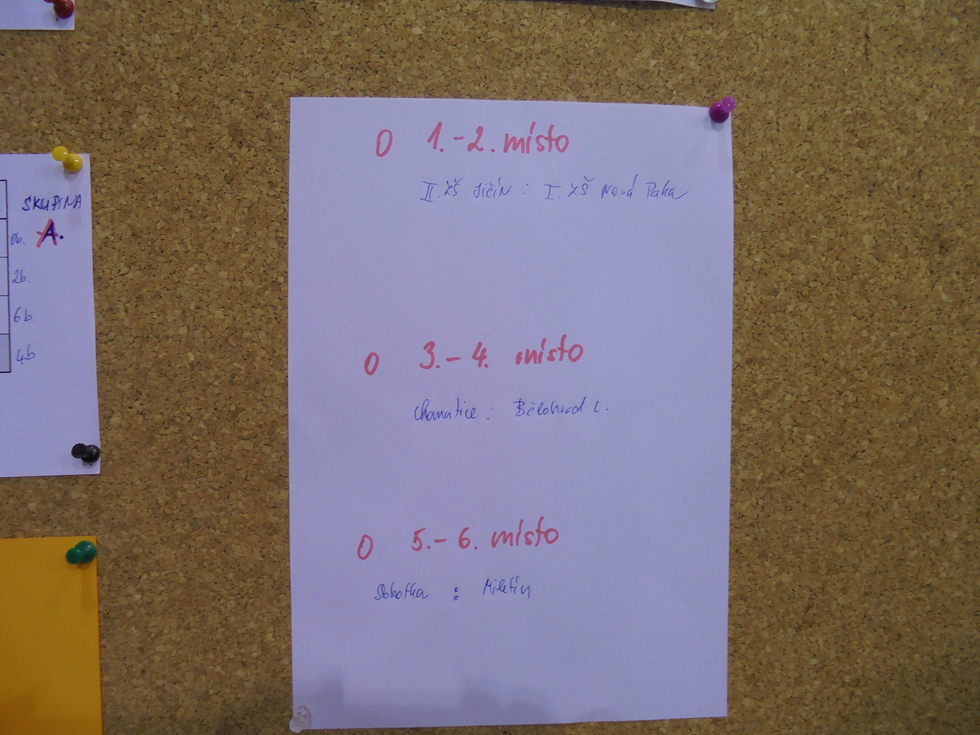 SKUPINA
0b. A.
2b.
6b.
4b
O 1.-2. místo
II. ZŠ Jičín : I. ZŠ Nová Paka
O 3.-4. místo
Chomutice : Bělohrad L.
O 5.-6. místo
Sobotka : Miletín